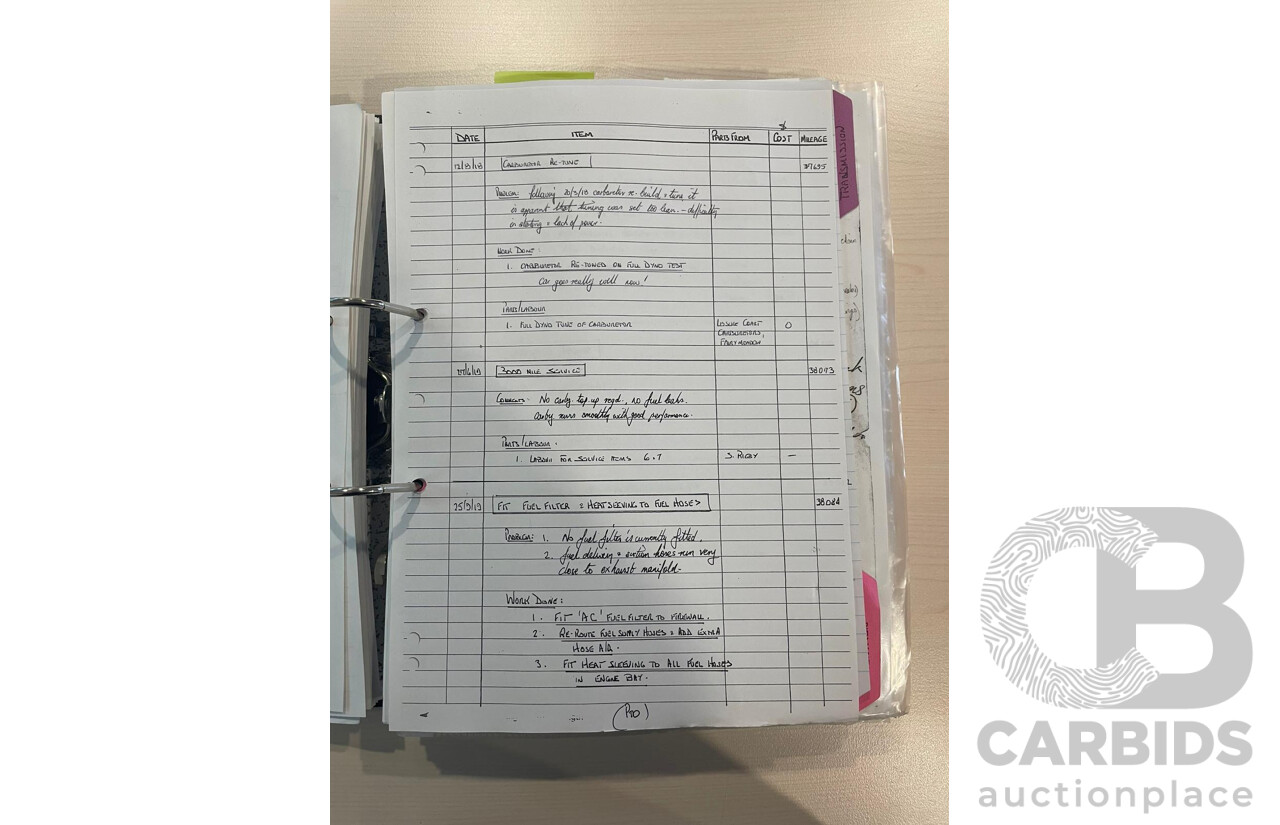 $
DATE ITEM PARTS FROM COST MILEAGE
12/8/18 CARBURETOR RE-TUNE 37635
PROBLEM: following 20/3/18 carburetor re-build & tune it
is apparent that tuning was set too lean - difficulty
in starting & lack of power.
WORK DONE:
1. CARBURETOR RE-TUNED ON FULL DYNO TEST
Car goes really well now!
PARTS/LABOUR
1. FULL DYNO TUNE OF CARBURETOR COAST 0
CARBURETORS,
FAIRY MEADOW
3000 MILE SERVICE 38073
COMMENTS: No carby top up reqd., no fuel leaks.
Carby runs smoothly with good performance.
PARTS/LABOUR.
1. LABOUR FOR SERVICE ITEMS 6.7 S. RIGBY -
25/9/19 FIT FUEL FILTER & HEAT SLEEVING TO FUEL HOSES 38084
PROBLEM: 1. No fuel filter is currently fitted.
2. fuel delivery & suction hoses run very
close to exhaust manifold.
WORK DONE:
1. FIT 'AC' FUEL FILTER TO FIREWALL.
2. RE-ROUTE FUEL SUPPLY HOSES & ADD EXTRA
HOSE
3. FIT HEAT SLEEVING TO ALL FUEL HOSES
IN ENGINE BAY.
(PTO)
TRANSMISSION
CB
CARBIDS
auctionplace